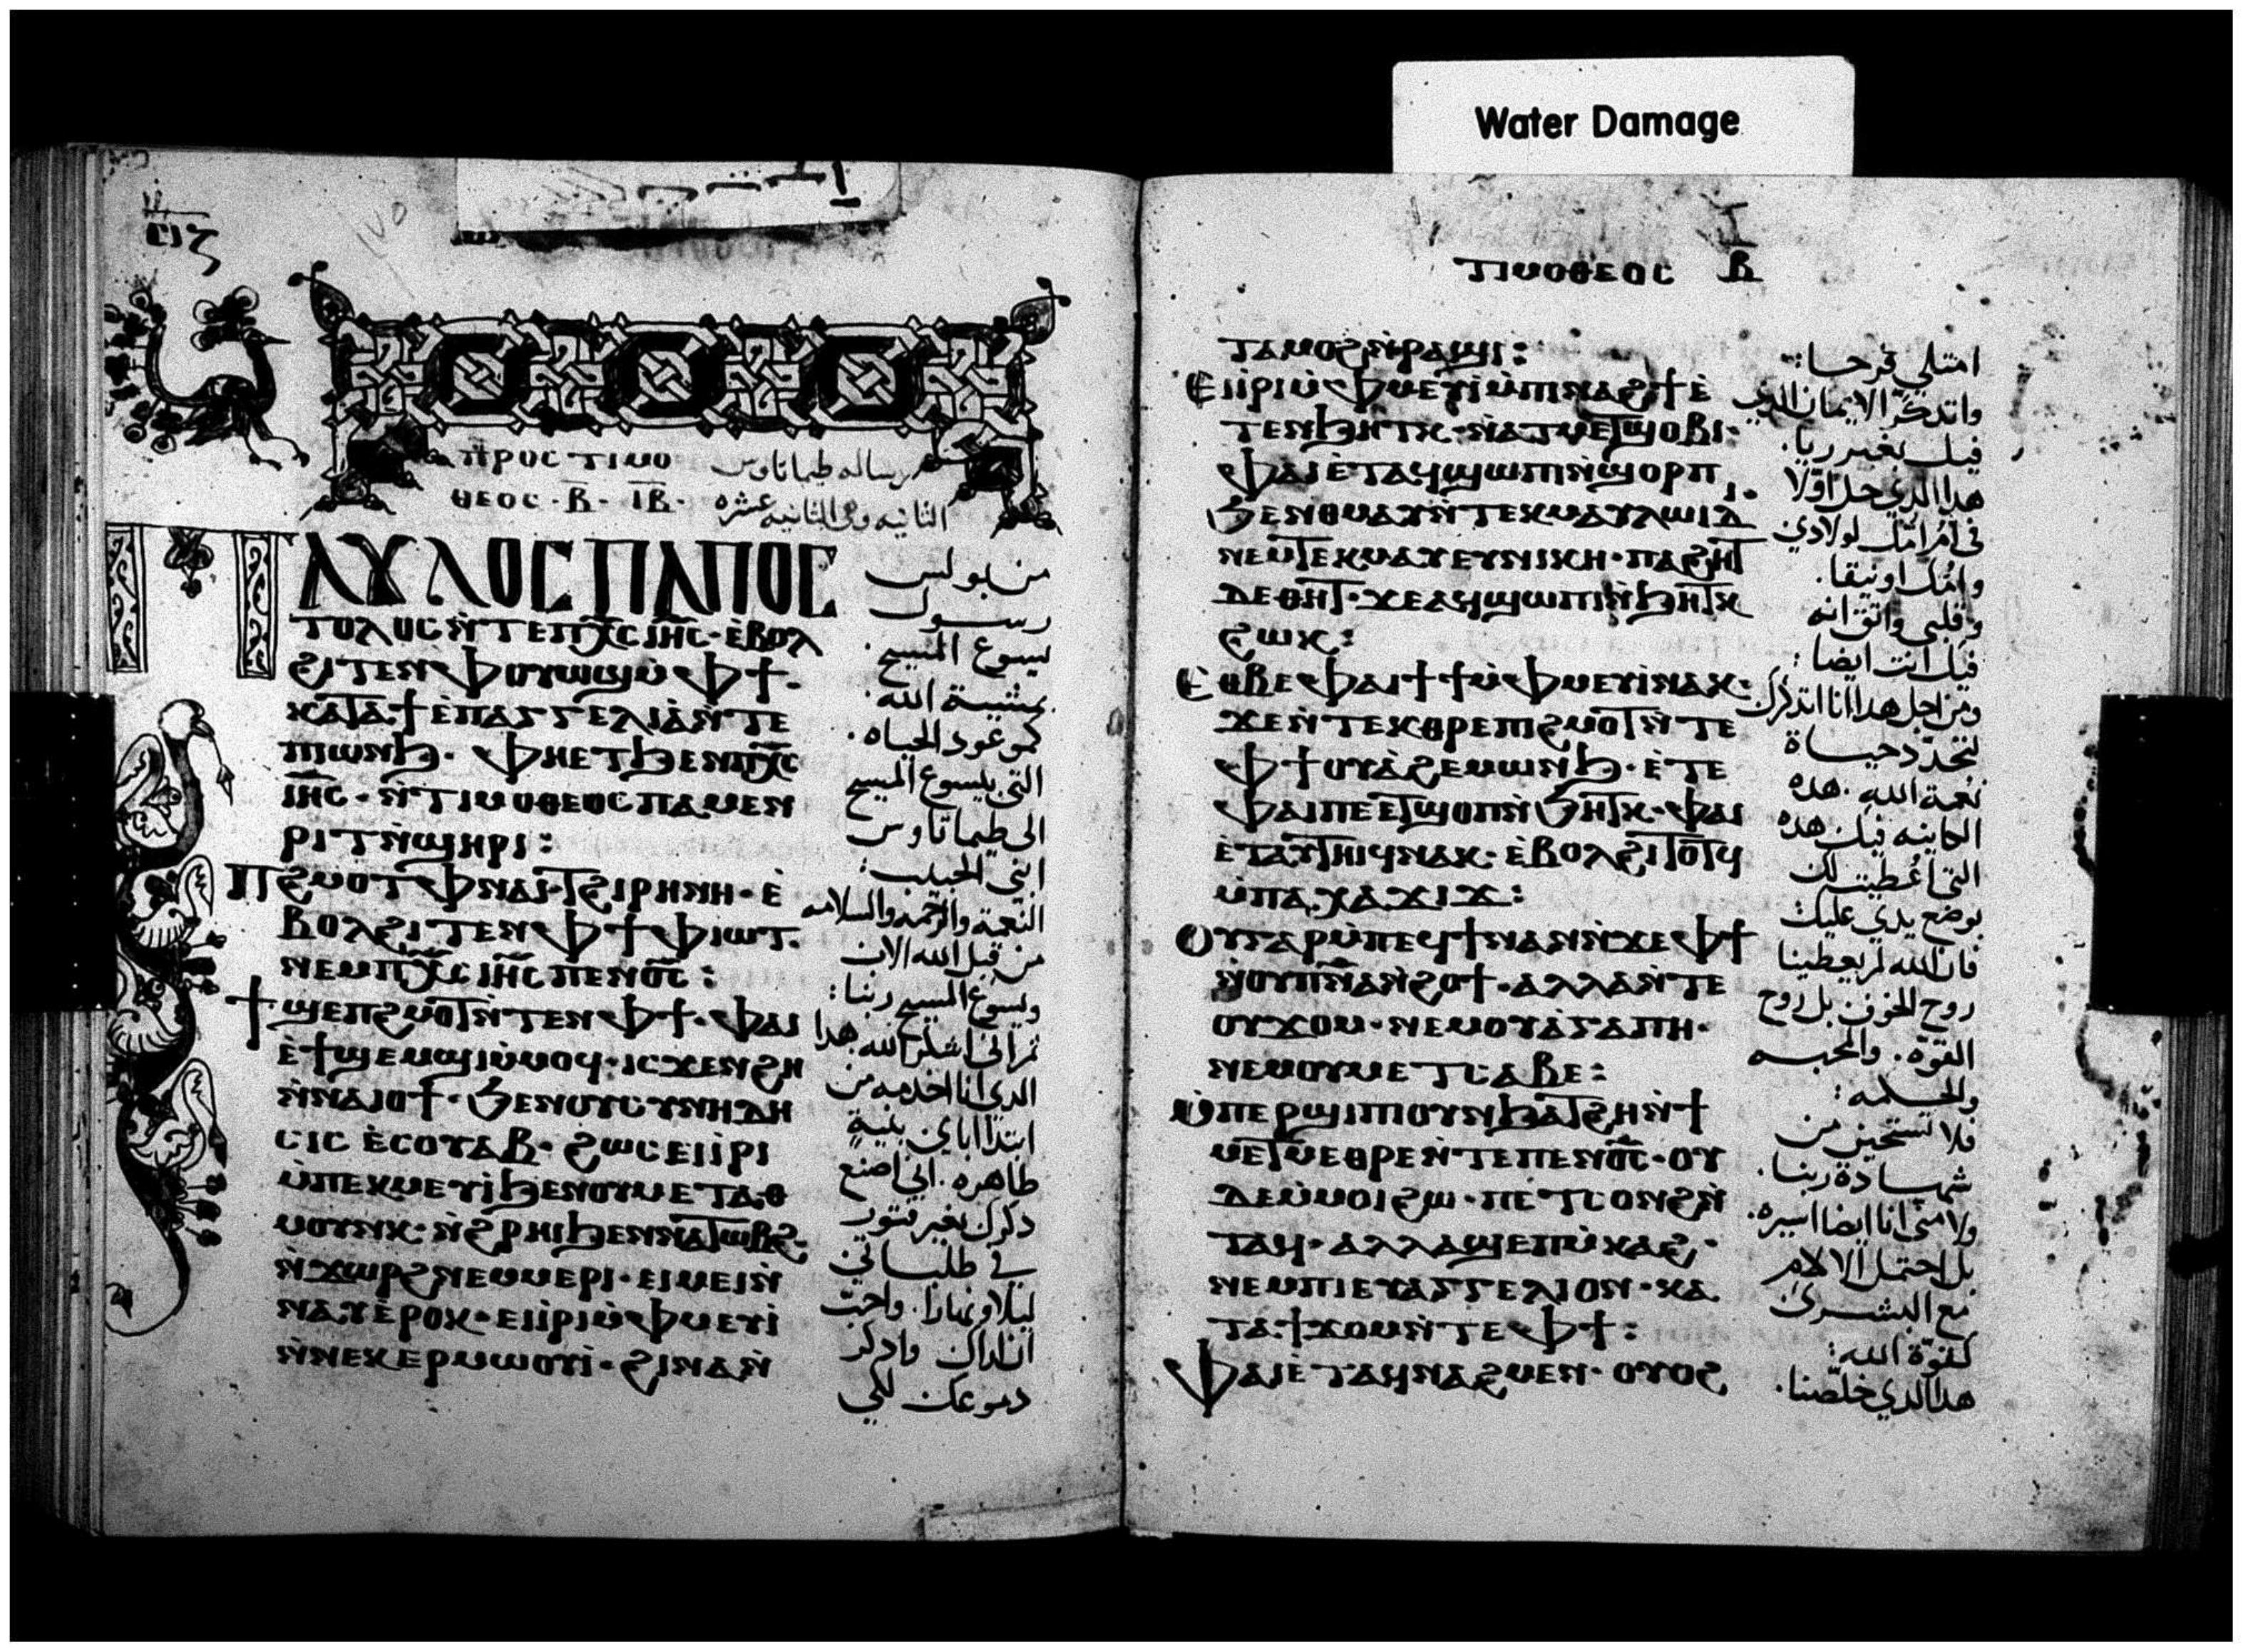 Water Damage
ⲥⲓⲍ
ⲡⲣⲟⲥ ⲧⲓⲙⲟ
ⲑⲉⲟⲥ · ⲃ̅ · ⲓ̅ⲃ̅ ·
رساله طيماتاوس
الثانيه وهى الثانيه عشره
ⲡⲁⲩⲗⲟⲥ ⲡⲁⲡⲟⲥ
ⲧⲟⲗⲟⲥ ⲛ̀ⲧⲉ ⲡⲭ̅ⲥ̅ ⲓⲏ̅ⲥ̅ · ⲉ̀ⲃⲟⲗ
ϩⲓⲧⲉⲛ ⲫⲟⲩⲱϣ ⲙ̀ⲫϯ ·
ⲕⲁⲧⲁ ϯⲉⲡⲁⲅⲅⲉⲗⲓⲁ ⲛ̀ⲧⲉ
ⲡⲓⲱⲛϧ · ⲫⲏⲉⲧϧⲉⲛ ⲡⲭ̅ⲥ̅
ⲓⲏ̅ⲥ̅ · ⲛ̀ⲧⲓⲙⲟⲑⲉⲟⲥ ⲡⲁⲙⲉⲛ
ⲣⲓⲧ ⲛ̀ϣⲏⲣⲓ :
ⲡϩⲙⲟⲧ ⲫⲛⲁⲓ · ⲧϩⲓⲣⲏⲛⲏ · ⲉ̀
ⲃⲟⲗϩⲓⲧⲉⲛ ⲫϯ ⲫⲓⲱⲧ ·
ⲛⲉⲙ ⲡⲭ̅ⲥ̅ ⲓⲏ̅ⲥ̅ ⲡⲉⲛⲟ̅ⲥ̅ :
ϯϣⲉⲡϩⲙⲟⲧ ⲛ̀ⲧⲉⲛ ⲫϯ · ⲫⲁⲓ
ⲉ̀ϯϣⲉⲙϣⲓ ⲙ̀ⲙⲟϥ · ⲓⲥϫⲉⲛ ϩⲏ
ⲛ̀ⲛⲁⲓⲟϯ · ϧⲉⲛ ⲟⲩⲥⲩⲛⲏⲇⲏ
ⲥⲓⲥ ⲉ̀ⲥⲟⲩⲁⲃ · ϩⲱⲥ ⲉⲓⲓ̀ⲣⲓ
ⲙ̀ⲡⲉⲕⲙⲉⲩⲓ̀ ϧⲉⲛ ⲟⲩⲙⲉⲧⲁⲑ
ⲙⲟⲩⲛⲕ · ⲛ̀ϩⲣⲏⲓ ϧⲉⲛ ⲛⲁⲧⲱⲃϩ ·
ⲛ̀ϫⲱⲣϩ ⲛⲉⲙ ⲙⲉⲣⲓ · ⲉⲓⲙⲉⲓ ⲛ̀
ⲛⲁⲩ ⲉ̀ⲣⲟⲕ · ⲉⲓⲓ̀ⲣⲓ ⲙ̀ⲫⲙⲉⲩⲓ̀
ⲛ̀ⲛⲉⲕⲉⲣⲙⲱⲟⲩⲓ̀ · ϩⲓⲛⲁ ⲛ̀
من بولس
رسول
يسوع المسيح ·
بمشيية الله ·
كموعود الحياه ·
التى بيسوع المسيح
الى طيماتاوس
ابنى الحبيب :
النعمة والرحمه والسلامه
من قبل الله الاب
ويسوع المسيح ربنا :
ثم انى اشكر الله هدا
الدى انا اخدمه من
ابتدا اباى بنية
طاهره · انى اصنع
دكرك بغير فتور
فى طلباتى
ليلا ونهارا · واحب
ان اراك وادكر
دموعك لكى
ⲧⲓⲙⲟⲑⲉⲟⲥ ⲃ̅
ⲧⲁⲙⲟϩ ⲛ̀ⲣⲁϣⲓ :
ⲉⲓⲓ̀ⲣⲓ ⲙ̀ⲫⲙⲉⲩⲓ̀ ⲙ̀ⲡⲓⲛⲁϩϯ ⲉ̀
ⲧⲉⲛϧⲏⲧⲕ · ⲛ̀ⲁⲧⲙⲉⲧϣⲟⲃⲓ ·
ⲫⲁⲓ ⲉ̀ⲧⲁϥϣⲱⲡⲓ ⲛ̀ϣⲟⲣⲡ
ϧⲉⲛ ⲑⲙⲁⲩ ⲛ̀ⲧⲉⲕⲙⲁⲩ ⲗⲱⲓⲇ
ⲛⲉⲙ ⲧⲉⲕⲙⲁⲩ ⲉⲩⲛⲓⲕⲏ · ⲡⲁϩⲏⲧ
ⲇⲉ ⲑⲏⲧ · ϫⲉ ⲁϥϣⲱⲡⲓ ⲛ̀ϧⲏⲧⲕ
ϩⲱⲕ :
ⲉⲑⲃⲉ ⲫⲁⲓ ϯϯ ⲙ̀ⲫⲙⲉⲩⲓ̀ ⲛⲁⲕ ·
ϫⲉ ⲛ̀ⲧⲉⲕⲑⲣⲉ ⲡⲓϩⲙⲟⲧ ⲛ̀ⲧⲉ
ⲫϯ ⲟⲩⲁ̀ϩⲉⲙⲱⲛϧ · ⲉ̀ⲧⲉ
ⲫⲁⲓ ⲡⲉ ⲉⲧϣⲟⲡ ⲛ̀ϧⲏⲧⲕ · ⲫⲁⲓ
ⲉ̀ⲧⲁⲩⲧⲏⲓϥ ⲛⲁⲕ · ⲉ̀ⲃⲟⲗϩⲓⲧⲟⲧϥ
ⲙ̀ⲡⲁⲭⲁϫⲓϫ :
ⲟⲩⲅⲁⲣ ⲙ̀ⲡⲉϥϯ ⲛⲁⲛ ⲛ̀ϫⲉ ⲫϯ
ⲛ̀ⲟⲩⲡⲛ̅ⲁ̅ ⲛ̀ϩⲟϯ · ⲁⲗⲗⲁ ⲛ̀ⲧⲉ
ⲟⲩϫⲟⲙ · ⲛⲉⲙ ⲟⲩⲁ̀ⲅⲁⲡⲏ ·
ⲛⲉⲙ ⲟⲩⲙⲉⲧⲥⲁⲃⲉ :
ⲙ̀ⲡⲉⲣϣⲓⲡⲓ ⲟⲩⲛ ϧⲁⲧϩⲏ ⲛ̀ϯ
ⲙⲉⲧⲙⲉⲑⲣⲉ ⲛ̀ⲧⲉ ⲡⲉⲛⲟ̅ⲥ̅ · ⲟⲩ
ⲇⲉ ⲙ̀ⲙⲟⲓ ϩⲱ · ⲡⲉⲧⲥⲟⲛϩ ⲛ̀
ⲧⲁϥ · ⲁⲗⲗⲁ ϣⲉⲡ ⲙ̀ⲕⲁϩ ·
ⲛⲉⲙ ⲡⲓⲉⲩⲁⲅⲅⲉⲗⲓⲟⲛ · ⲕⲁ
ⲧⲁ ϯϫⲟⲙ ⲛ̀ⲧⲉ ⲫϯ :
ⲫⲁⲓ ⲉ̀ⲧⲁϥⲛⲁϩⲙⲉⲛ · ⲟⲩⲟϩ
امتلى فرحا :
واتدكر الايمان الدى
فيك بغير ريا ·
هدا الدى حل اولا
فى ام امك لولادى
وامك اونيقا ·
وقلبى واثق انه
فيك انت ايضا :
ومن اجل هدا انا اتدكرك
لتجدد حياة
نعمة الله · هده
الكاينه فيك هده
التى اعطيت لك
بوضع يدى عليك
فان الله لم يعطينا
روح الخوف بل روح
القوة · والمحبه
والحكمه :
فلا تستحيى من
شهادة ربنا ·
ولا منى انا ايضا اسيره ·
بل احتمل الالام
مع البشرى
كقوة الله :
هدا الدى خلصنا ·